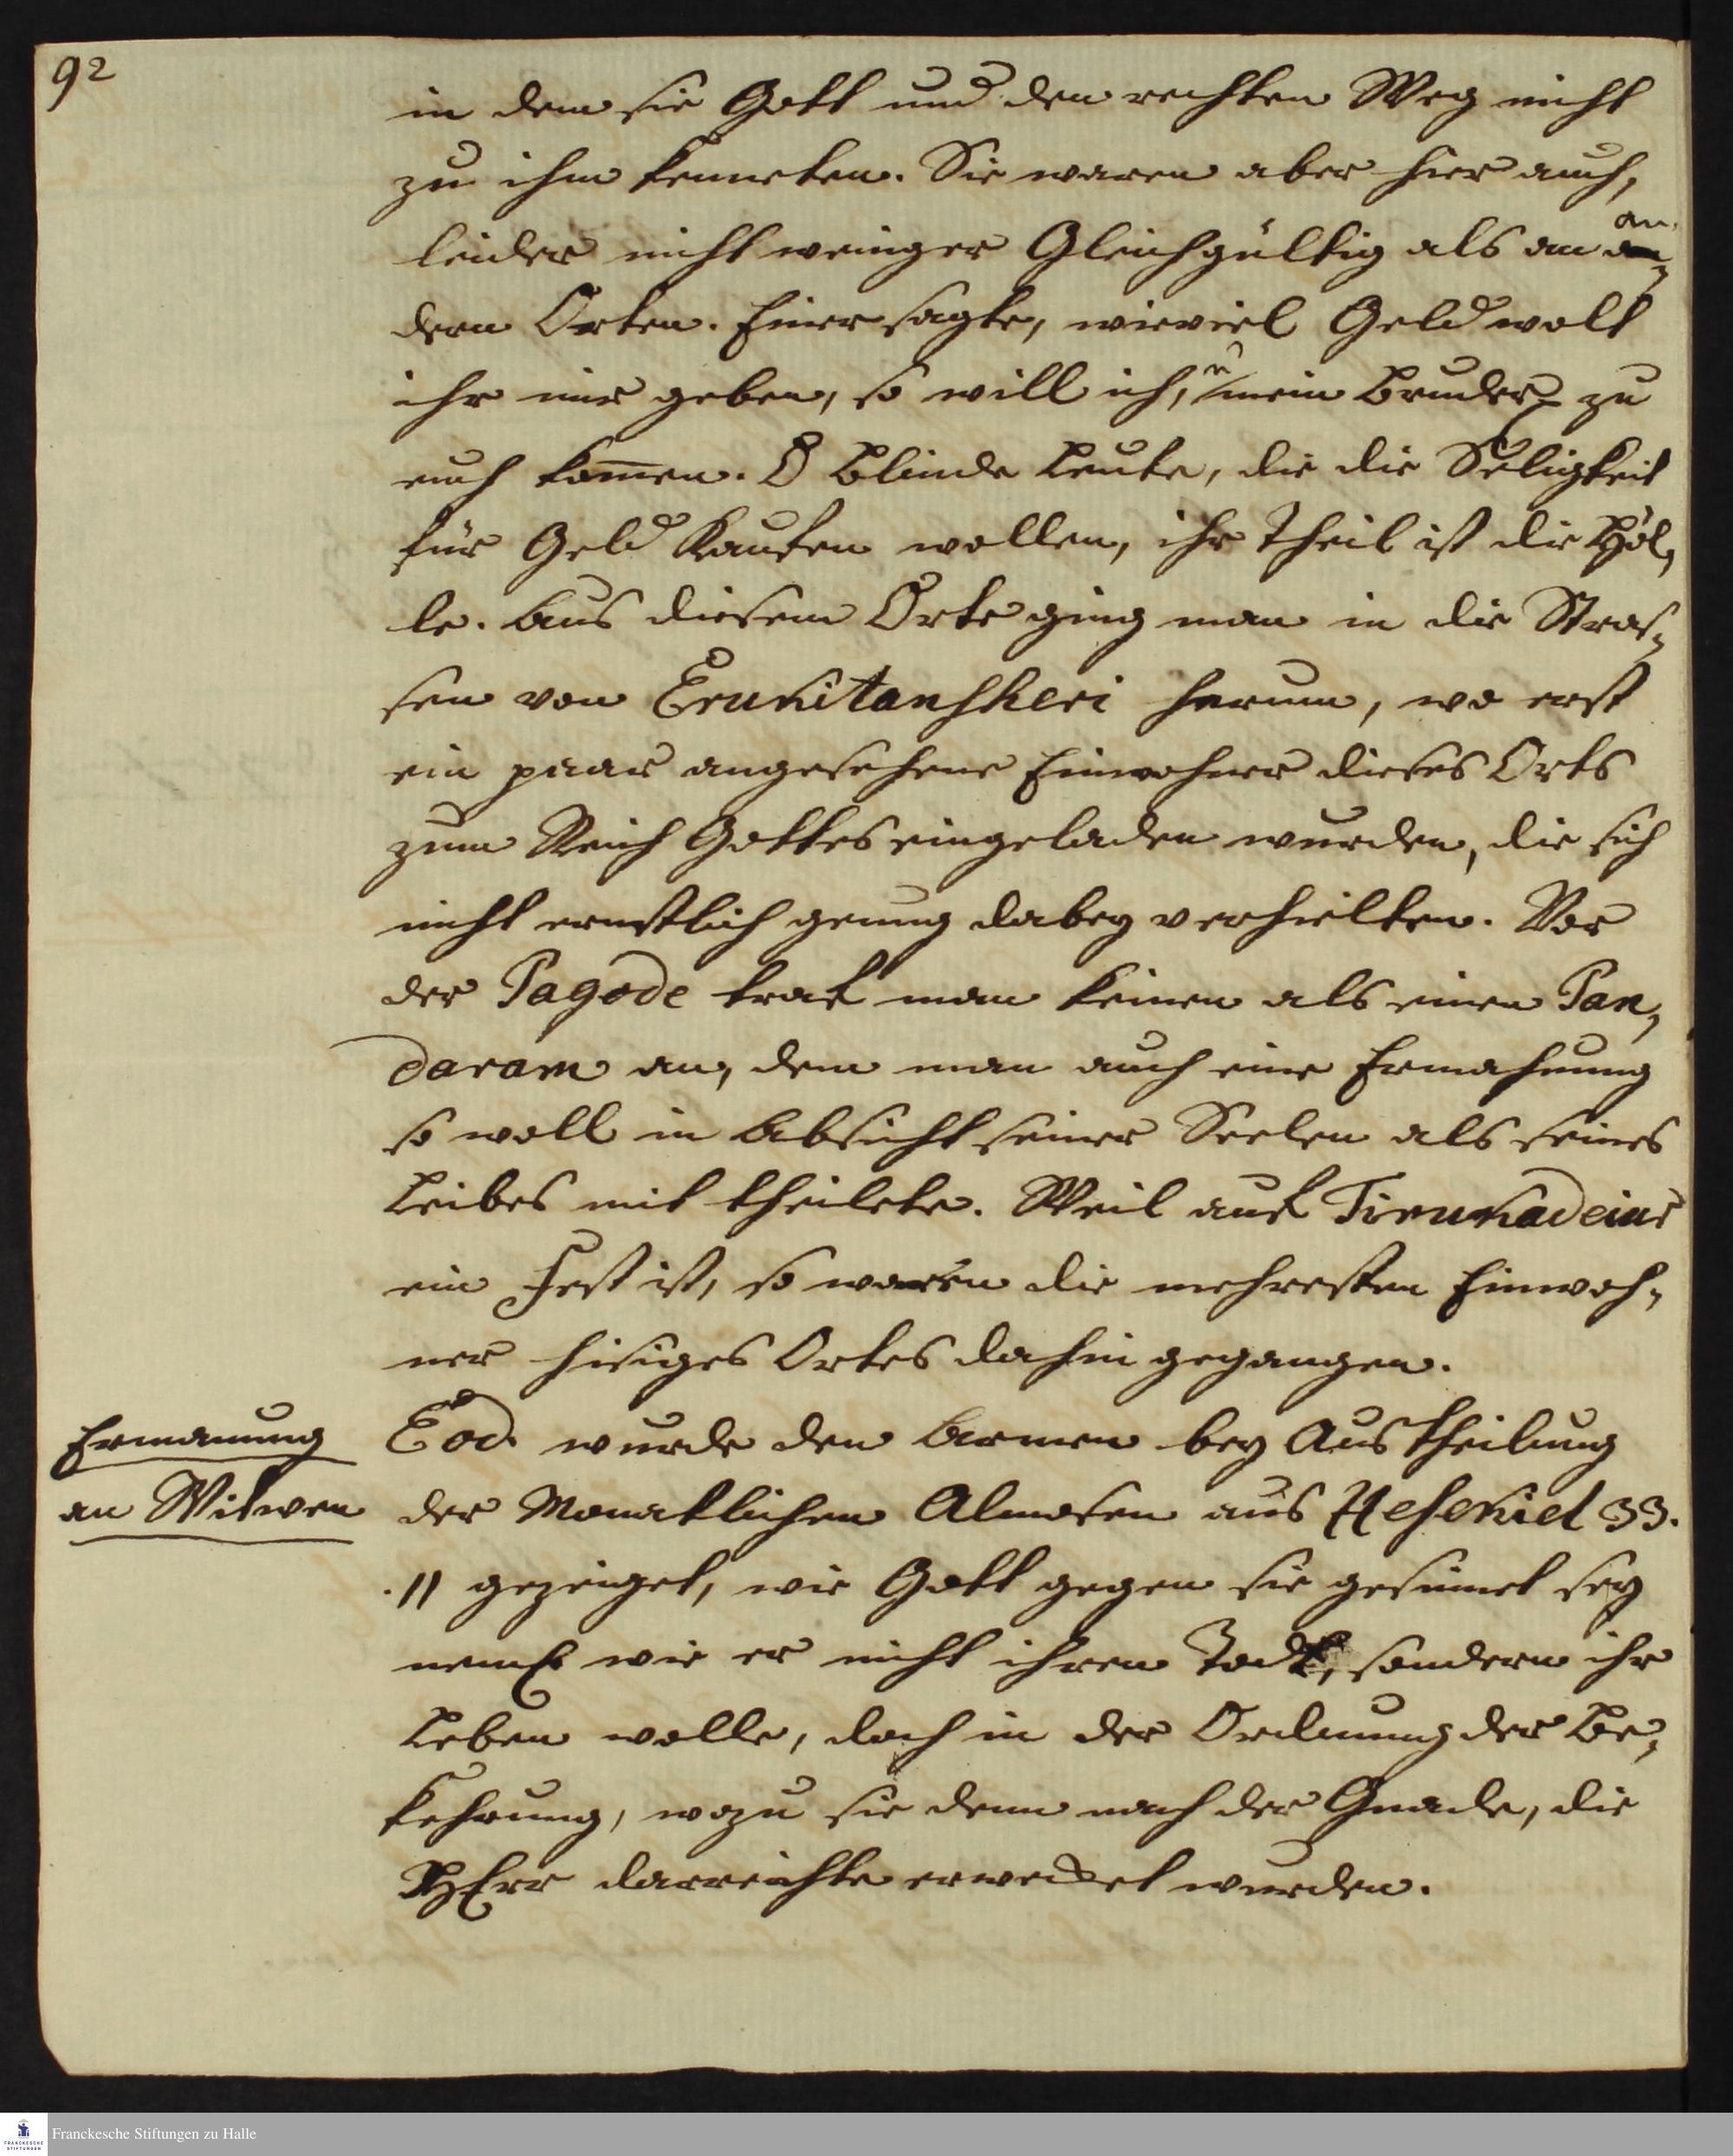 92
in dem sie Gott und den rechten Weg nicht
zu ihm kenneten. Sie waren aber hier auch,
leider nicht weniger Gleichgültig als an an
dern Orten. Einer sagte, wieviel Geld wolt
ihr mir geben, so will ich, u mein Bruder zu
euch kom̅en. O blinde Leute, die die Seligkeit
für Geld Kaufen wollen, ihr Theil ist die Höl,
le. Aus diesem Orte ging man in die Stras,
sen von Erukitanscheri herum, wo erst
ein paar angesehene Einwohner dieses Orts
zum Reich Gottes eingeladen wurden, die sich
nicht ernstlich genug dabey verhielten. Vor
der Pagode traf man keinen als einen Pan,
daram an, dem man auch eine Ermahnung
so woll in Absicht seiner Seelen als seines
Leibes mit theilete. Weil auf Tirukadeiur
ein Fest ist, so waren die mehresten Einwoh,
ner hisiges Ortes dahin gegangen.
Ermanung
an Witwen
Eod. wurde den Armen bey Austheilung
der Monatlichen Almosen aus Hesekiel 33.
.11 gezeiget, wie Gott gegen sie gesinnet sey
neml. wie er nicht ihren Todt, sondern ihr
Leben wolle, doch in der Ordnung der Be,
kehrung, wozu sie denn nach der Gnade, die
HErr darreichte erwecket wurden.
Franckesche Stiftungen zu Halle
FRANCKESCHE
STIFTUNGEN